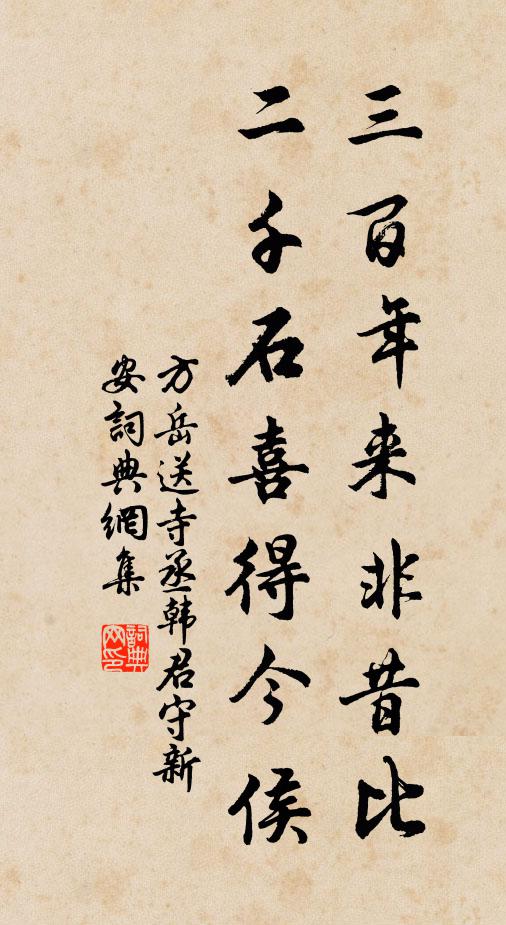 三百年来非昔比
二千石喜得今侯
方岳送寺丞韩君守新
安詞典網集
詞典
网印